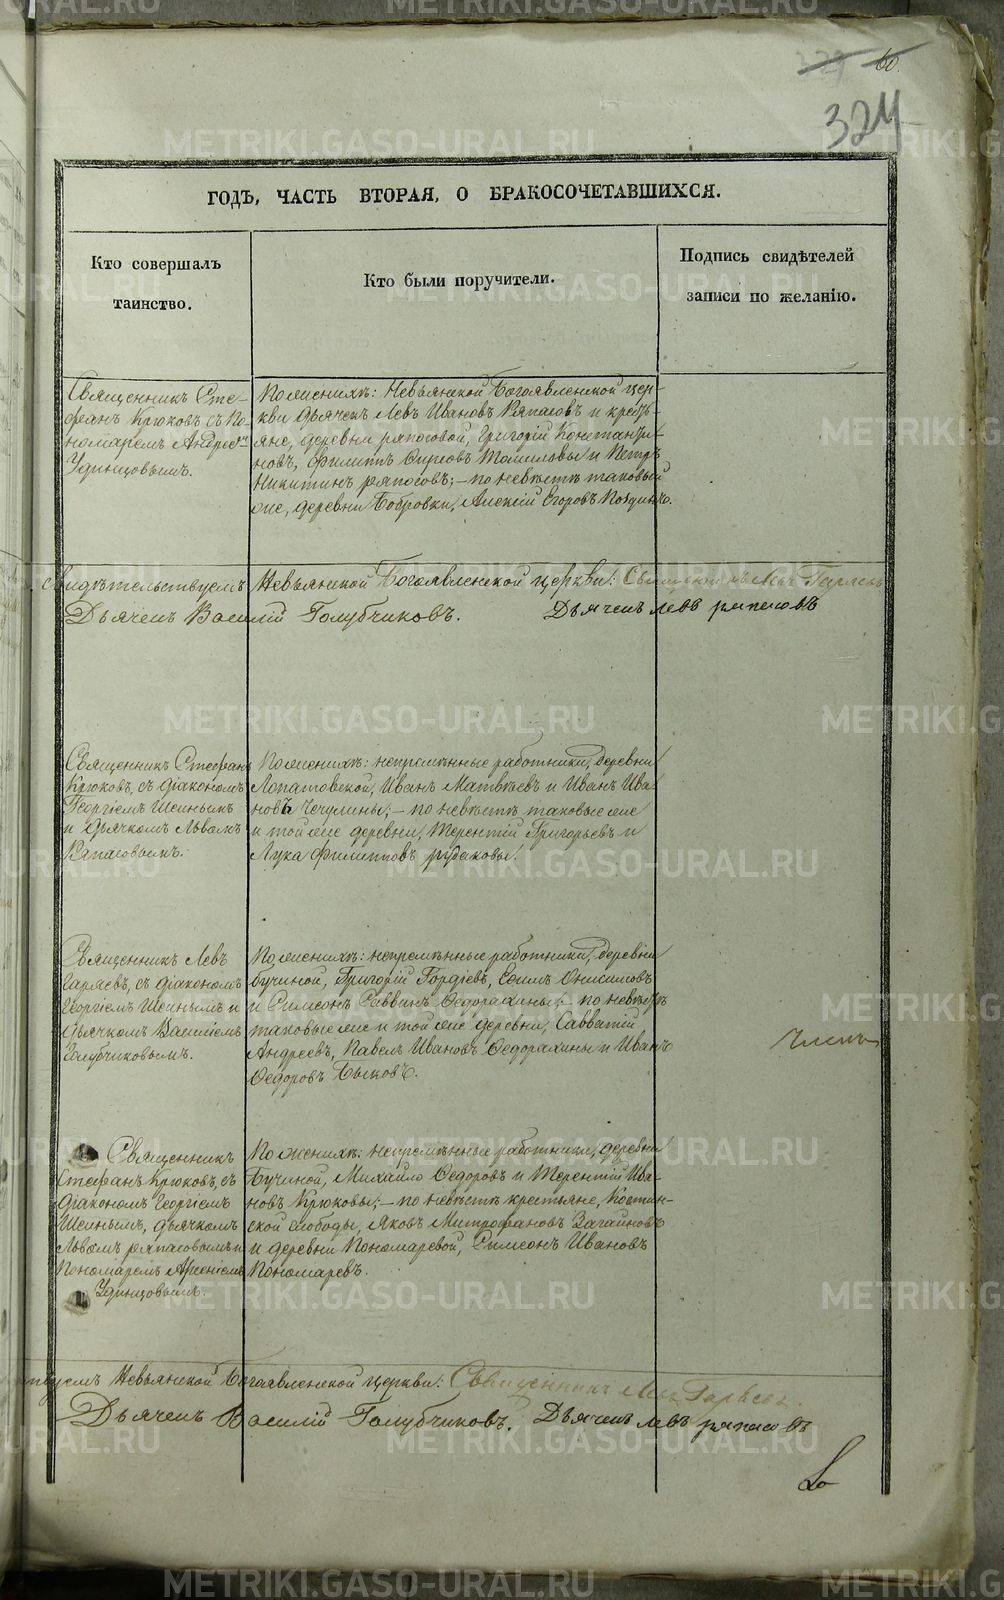 60.
324
ГОДЪ, ЧАСТЬ ВТОРАЯ, О БРАКОСОЧЕТАВШИХСЯ.
Кто совершалъ
таинство.
Кто были поручители.
Подпись свидѣтелей
записи по желанію.
Священникъ Сте-
фанъ Крюковъ съ По-
номаремъ
Удинцовымъ.
По женихѣ: Невьянской Богоявленской цер-
кви дьячекъ Левъ Ивановъ Ряпасовъ и кресть-
яне, деревни ряпосовой, Григорій Константи-
новъ, Филиппъ Томиловы и Петръ
Никитинъ ряпосовъ; – по невѣстѣ таковый
же, деревни Бобровки, Алексій Егоровъ
Свидѣтельствуемъ Невьянской Богоявленской церкви: Священникъ Левъ Гаряевъ
Дьячекъ Василій Голубчиковъ. Дьячекъ левъ ряпасовъ
Священникъ Стефанъ
Крюковъ, съ діакономъ
Георгіемъ
и дьячкомъ Львомъ
Ряпасовымъ.
По женихѣ: непремѣнные работники, деревни
Лопатовской, Иванъ Матвѣевъ и Иванъ Ива-
новъ Чечулины; – по невѣстѣ таковые же
и той же деревни, Терентій Григорьевъ и
Лука Филипповъ рудаковы.
Священникъ Левъ
Гаряевъ, съ діакономъ
Георгіемъ и
дьячкомъ Василіемъ
Голубчиковымъ.
По женихѣ: непремѣнные работники, деревни
бучиной, Григорій Гордѣевъ, Онисимовъ
и Симеонъ Саввинъ Ѳедорахины; – по невѣстѣ
таковые же и той же деревни, Савватій
Андреевъ, Павелъ Ивановъ Ѳедорахины и Иванъ
Ѳедоровъ Быковъ.
Священникъ
Стефанъ Крюковъ, съ
діакономъ Георгіемъ
дьячкомъ
Львомъ ряпасовымъ и
Пономаремъ Арсеніемъ
Удинцовымъ.
По женихѣ: непремѣнные работники, деревни
Бучиной, Михайло Ѳедоровъ и Терентій Ива-
новъ Крюковы; – по невѣстѣ крестьяне,
ской слободы, Яковъ Митрофановъ Загайновъ
и деревни Пономаревой, Симеонъ Ивановъ
Пономаревъ.
Невьянской Богоявленской церкви: Священникъ Левъ Гаряевъ
Дьячекъ Василій Голубчиковъ. Дьячекъ левъ ряпасовъ
METRIKI.GASO-URAL.RU